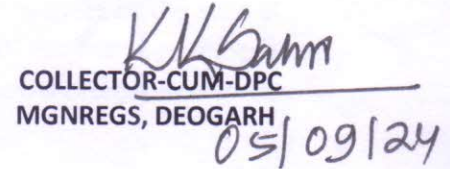 COLLECTOR-CUM-DPC
MGNREGS, DEOGARH
05/09/24